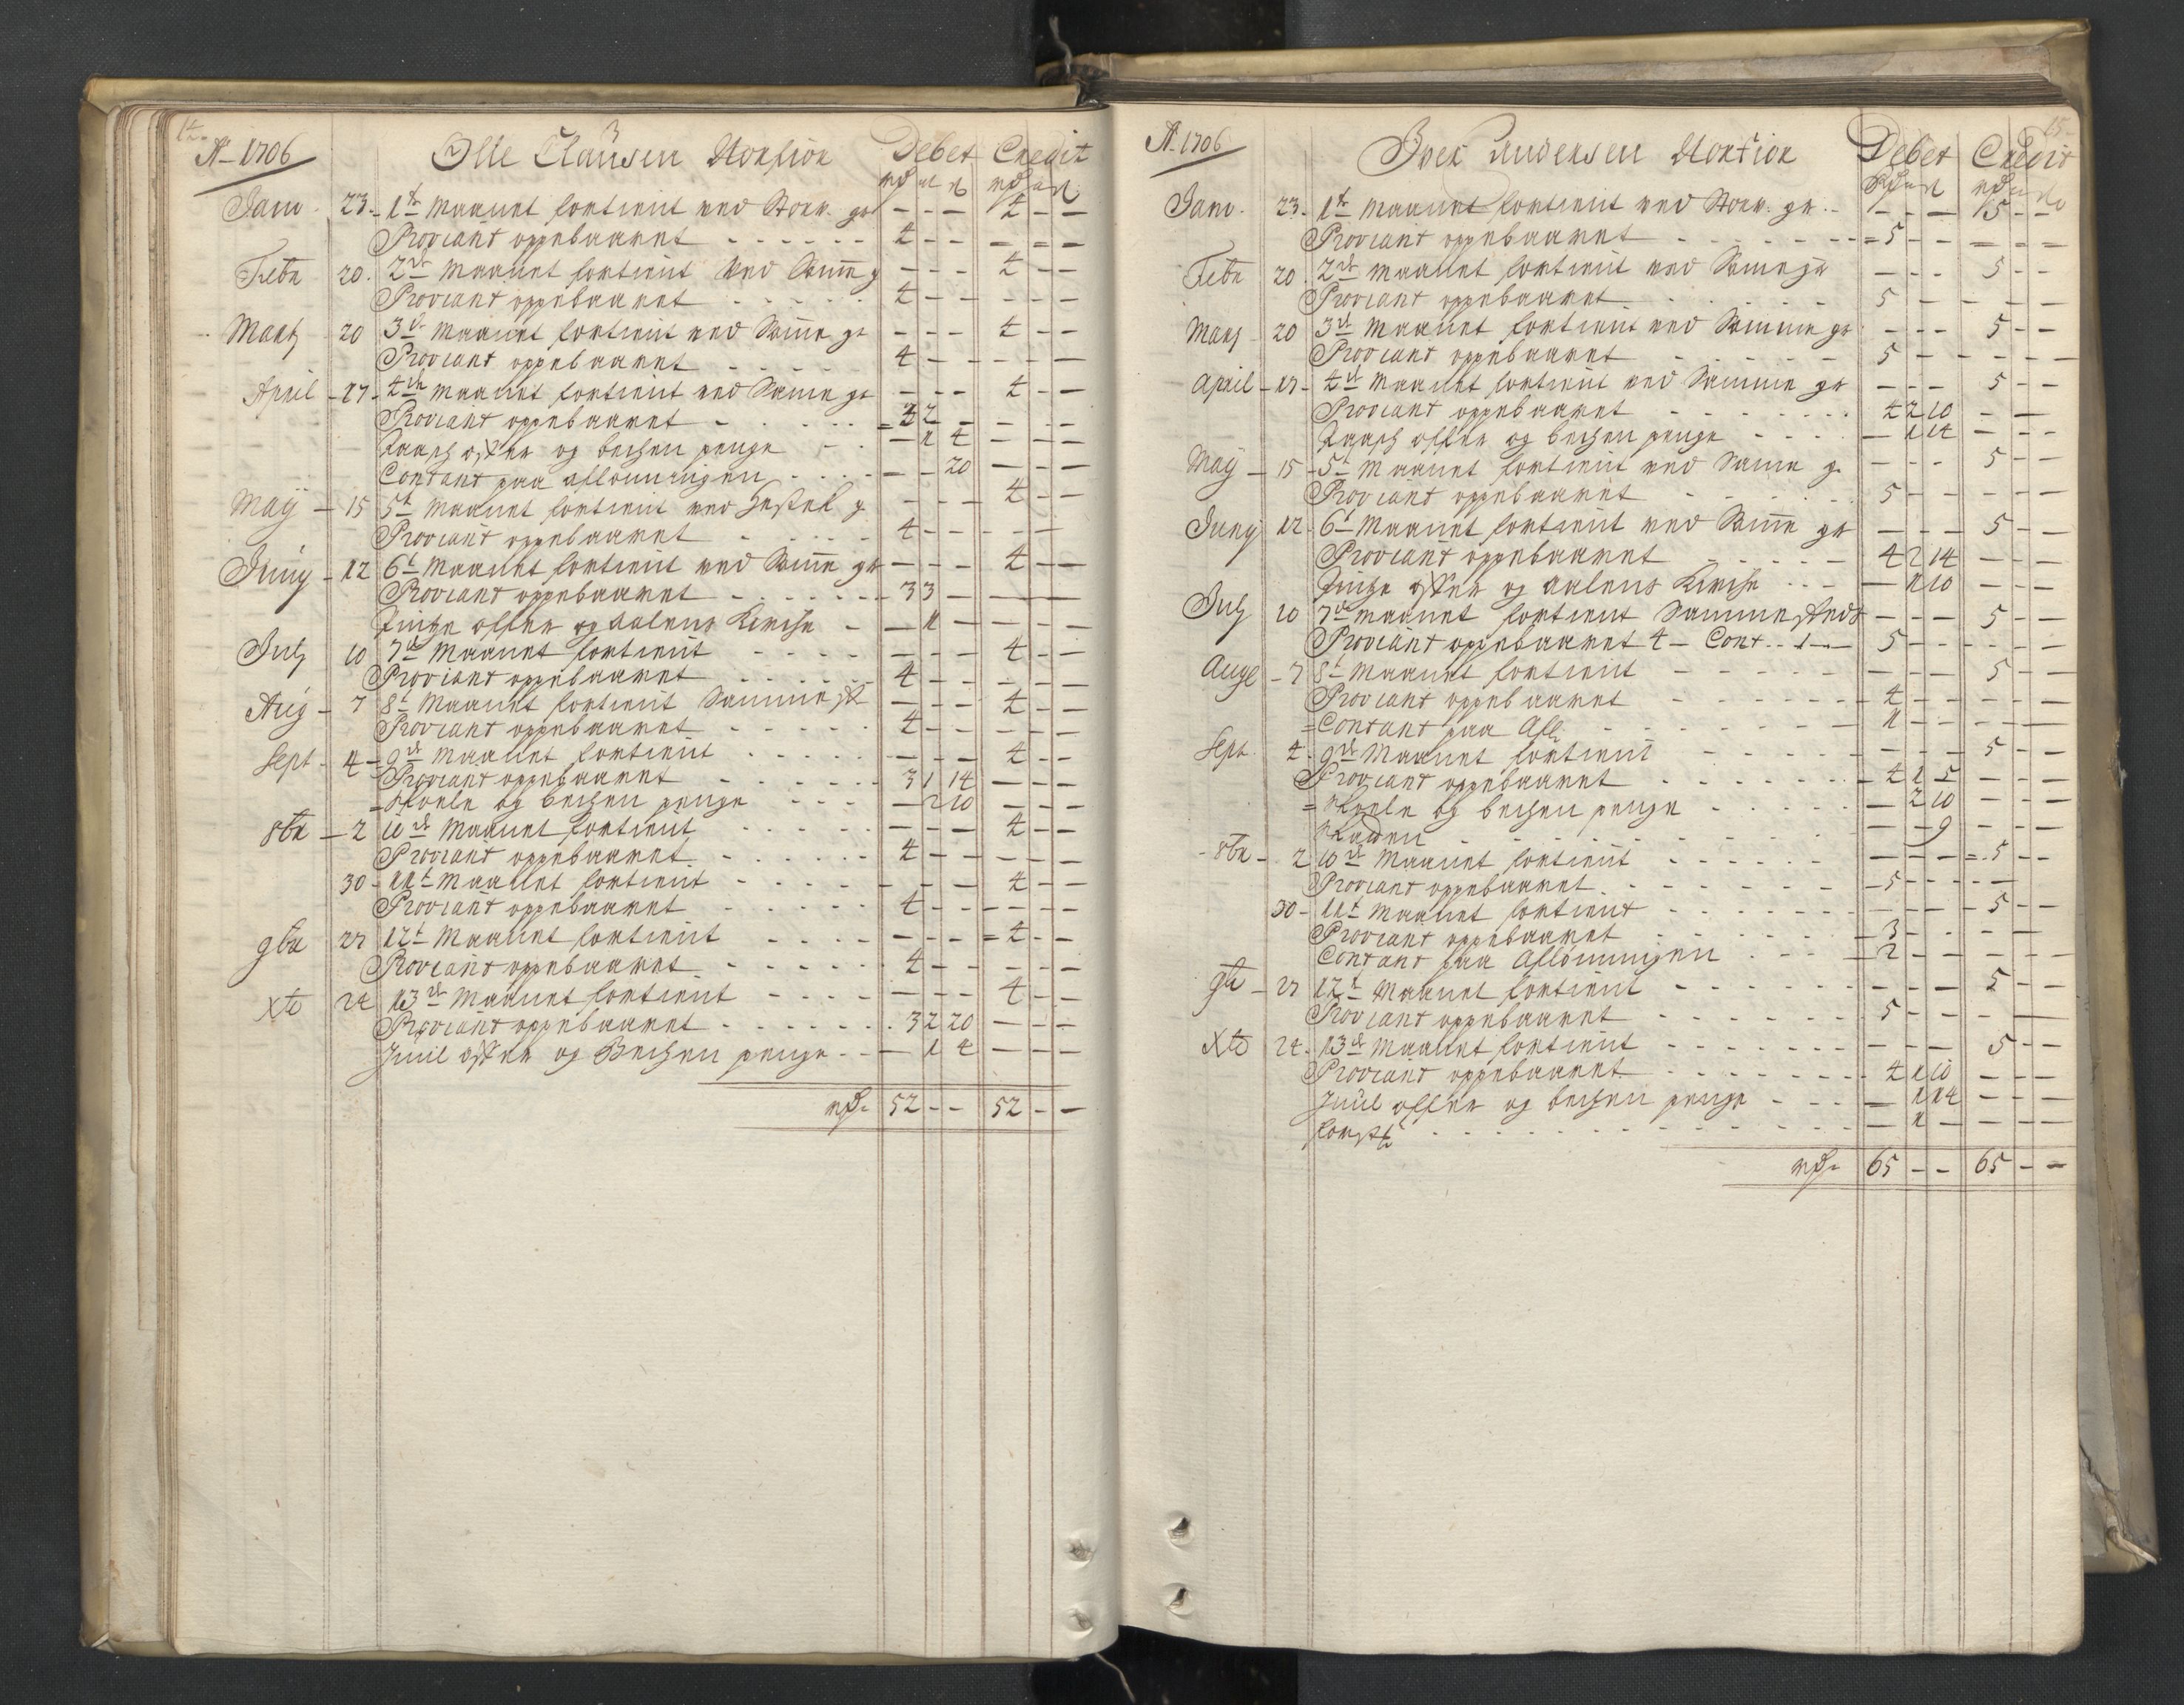 14.
Ao 1706
Olle Clausen Norfior Debet Credit
rd ort s rd ort s
Janv. 23. 1te Maanet fortient ved Storv. gr - - - 4 - -
Proviant oppebaaret - - - - 4 - - - - -
Febr 20. 2de Maanet fortient ved Same g - - - 4 - -
Proviant oppebaaret - - - - 4 - - - - -
Marty 20 3de Maanet fortient ved Same gr - - - 4 - -
Proviant oppebaaret - - - - 4 - - - - -
April - 17 - 4de Maanet fortient ved Same gr - - - 4 - -
Proviant oppebaaret - - - - 3 2 - - - -
Paasch offer og becken penge - - - 1 4 - - -
Contant paa aflønningen - - - - - 20 - - -
Maij - 15 5t Maanet fortient ved Hestek g - - - 4 - -
Proviant oppebaaret - - - - 4 - - - - -
Junij - 12 6t Maanet fortient ved Same gr - - - 4 - -
Proviant oppebaaret - - - - 3 3 - - - -
Pintze offer og Aalens Kirche - - 1 - - - -
July 10 7de Maanet fortient - - - - - - - 4 - -
Proviant oppebaaret - - - - 4 - - - - -
Aug - 7 8t Maanet fortient Sammest - - - 4 - -
Proviant oppebaaret - - - - 4 - - - - -
Sept - 4 - 9de Maanet fortient - - - - - - - 4 - -
Proviant oppebaaret - - - - 3 1 14 - - -
= Skoele og becken penge - - - - 2 10 - - -
8br - 2 10de Maanet fortient - - - - - - - 4 - -
Proviant oppebaaret - - - - 4 - - - - -
30 - 11t Maanet fortient - - - - - - - 4 - -
Proviant oppebaaret - - - - 4 - - - - -
9br 27 12t Maanet fortient - - - - - - - 4 - -
Proviant oppebaaret - - - - 4 - - - - -
Xbr 24 13de Maanet fortient - - - - - - - 4 - -
Proviant oppebaaret - - - - 3 2 20 - - -
Juul offer og Becken penge - - - 1 4 - - -
rd 52 - - 52 - -
15.
Ao 1706
Iver Andersen Norfior Debet Credit
rd ort s rd ort s
Janv. 23. 1te Maanet fortient ved Storv. gr. - - - - 5 - -
Proviant oppebaaret - - - - 5 - - - - -
Febr 20. 2de Maanet fortient ved Same gr - - - 5 - -
Proviant oppebaaret - - - - 5 - - - - -
Marty 20 3de Maanet fortient ved Samme gr - - - 5 - -
Proviant oppebaaret - - - - 5 - - - - -
April - 17 - 4de Maanet fortient ved Samme gr - - - 5 - -
Proviant oppebaaret - - - - 4 2 10 - - -
Paasch offer og becken penge - - - - 1 14 - - -
Maij - 15 - 5t Maanet fortient ved Same g. - - - 5 - -
Proviant oppebaaret - - - - 5 - - - - -
Junij 12. 6t Maanet fortient ved Same gr - - - 5 - -
Proviant oppebaaret - - - - 4 2 14 - - -
Pintze offer og Aalens Kirche - - - - 1 10 - - -
July 10 7de Maanet fortient Sammesteds - - - 5 - -
Proviant oppebaaret 4 - Cont. . 1 - - 5 - - - - -
Auge - 7 8t Maanet fortient - - - - - - - 5 - -
Proviant oppebaaret - - - - 4 - - - - -
= Contant paa Afl: - - - - 1 - - - - -
Sept. 4. 9de Maanet fortient - - - - - - - 5 - -
Proviant oppebaaret - - - - 4 1 5 - - -
= Skoele og becken penge - - - - 2 10 - - -
- - - - - 9 - - -
8br - 2 10de Maanet fortient - - - - - - - 5 - -
Proviant oppebaaret - - - - 5 - - - - -
30 - 11t Maanet fortient - - - - - - - 5 - -
Proviant oppebaaret - - - - 3 - - - - -
Contant paa Aflønningen - - - 2 - - - - -
9br - 27 12t Maanet fortient - - - - - - - 5 - -
Proviant oppebaaret - - - - 5 - - - - -
Xbr 24. 13de Maanet fortient - - - - - - - 5 - -
Proviant oppebaaret - - - - 4 1 10 - - -
Juul offer og becken penge - - - - 1 14 - - -
- - - - 1 - - - -
rd 65 - - 65 - -